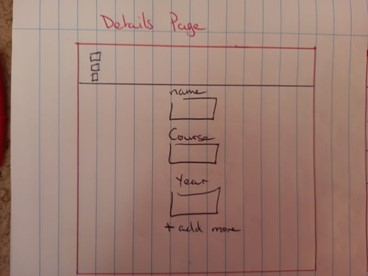 Details Page
name
Course
Year
+ add more